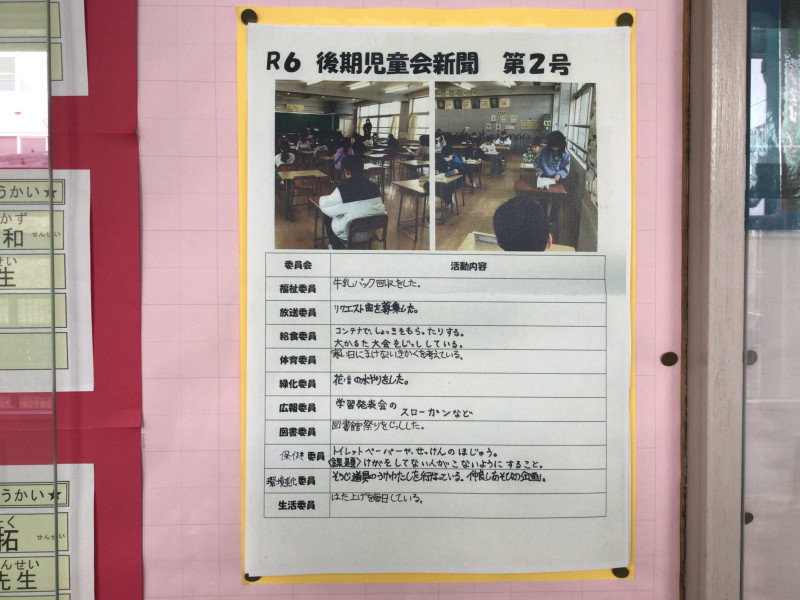 R6 後期児童会新聞 第2号
委員会 活動内容
福祉委員 牛乳パック回収をした。
放送委員 リクエスト曲を募集した。
給食委員 コンテナで、しょっきをもらったりする。
大かるた大会をじっししている。
体育委員 寒い日にまけないきかくを考えている。
緑化委員 花だんの水やりをした。
広報委員 学習発表会の
スローガンなど
図書委員 図書館祭りをじっしした。
保健委員 トイレットペーパーや、せっけんのほじゅう。
〈課題〉けがをしてない人がこないようにすること。
委員 そうじ道具のうけわたしを行なっている。仲良しあそびの企画。
生活委員 はた上げを毎日している。
うかい☆
かず
和 せんせい
せい
生
うかい☆
たく
拓 せんせい
せんせい
先生